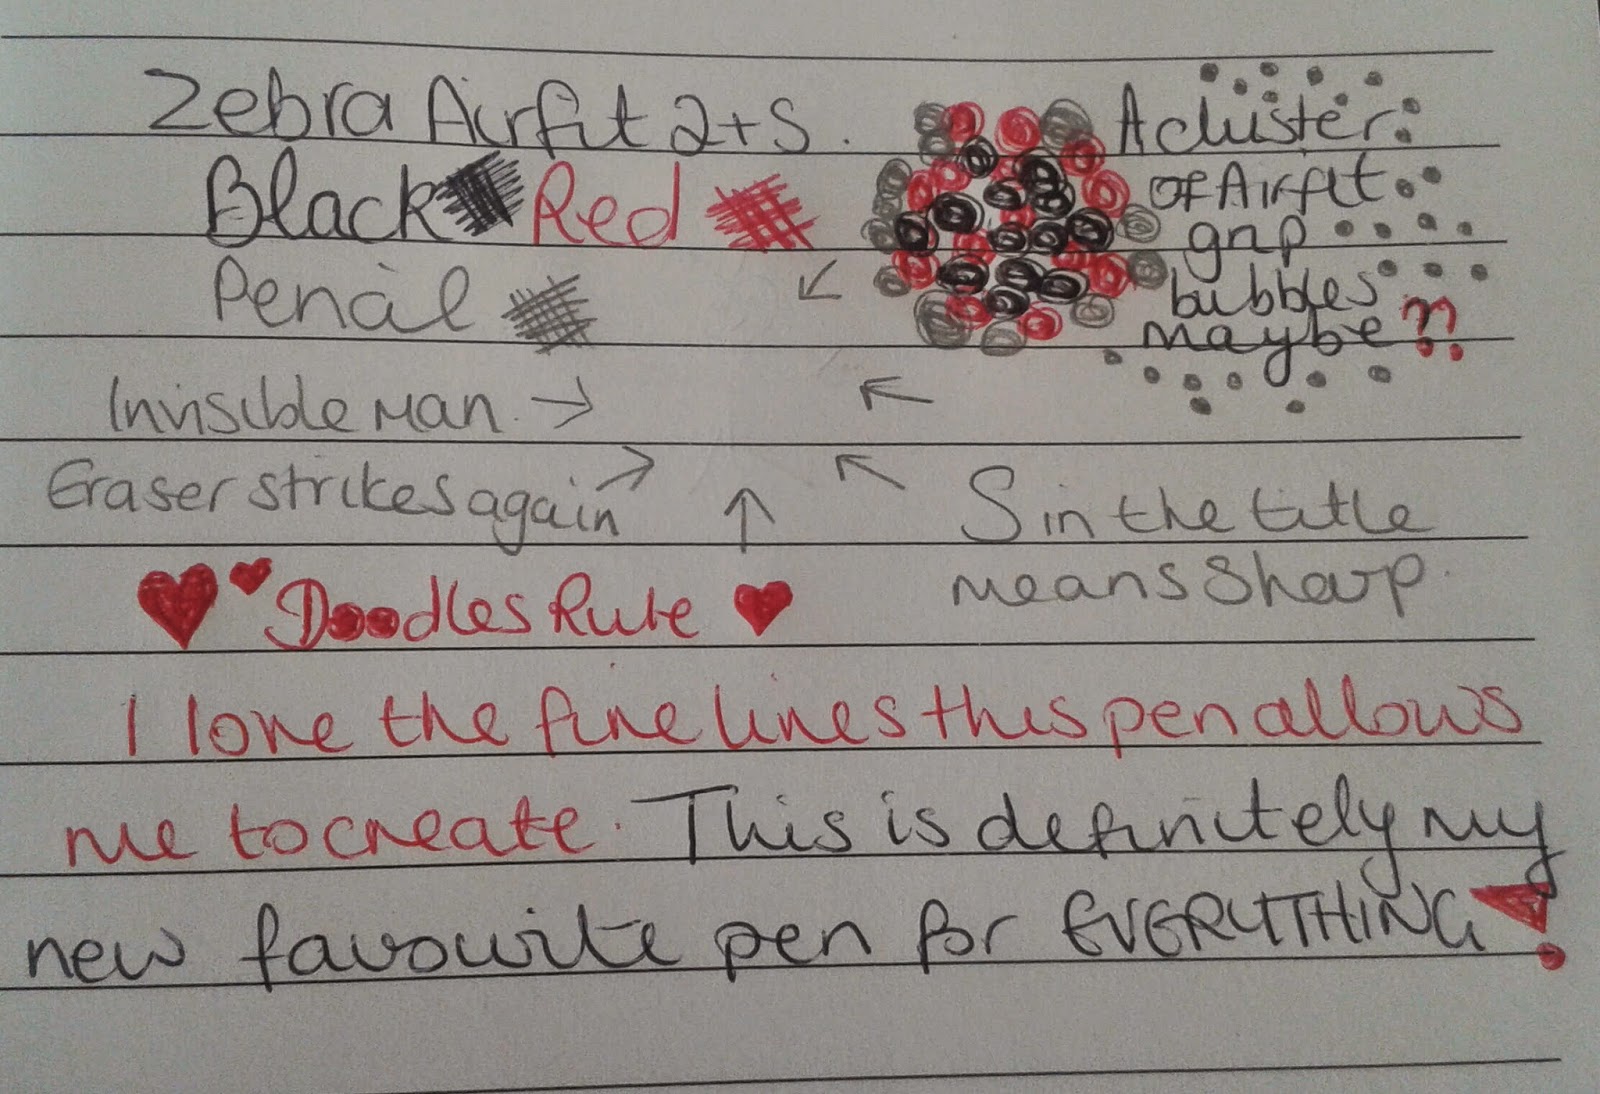 Zebra Airfit 2+S.
Black Red
Pencil
A cluster
of Airfit
grip
bubbles
maybe??
Invisible Man
Eraser strikes again
S in the title
means Sharp.
Doodles Rule
I love the fine lines this pen allows
me to create. This is definitely my
new favourite pen for EVERYTHING!